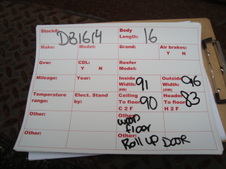 Stock#: DB1614 Body Length: 16
Make: Model: Brand: Air brakes: Y N
Gvw: CDL: Y N Reefer Model:
Mileage: Year: Inside Width: 91 Outside Width: 96
Temperature range: Elect. Stand by: Ceiling To floor: 90 Header To floor: 83
C 2 F H 2 F
Other: Other: wood floor
Other: Other: Roll up DOOR